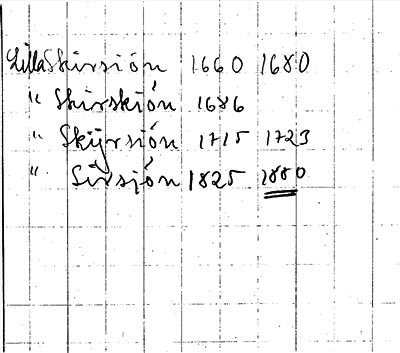 Lilla Skirsión 1660 1680
" Skirskión 1686
" Skÿrsión 1715 1723
" Sirsjón 1825 1880